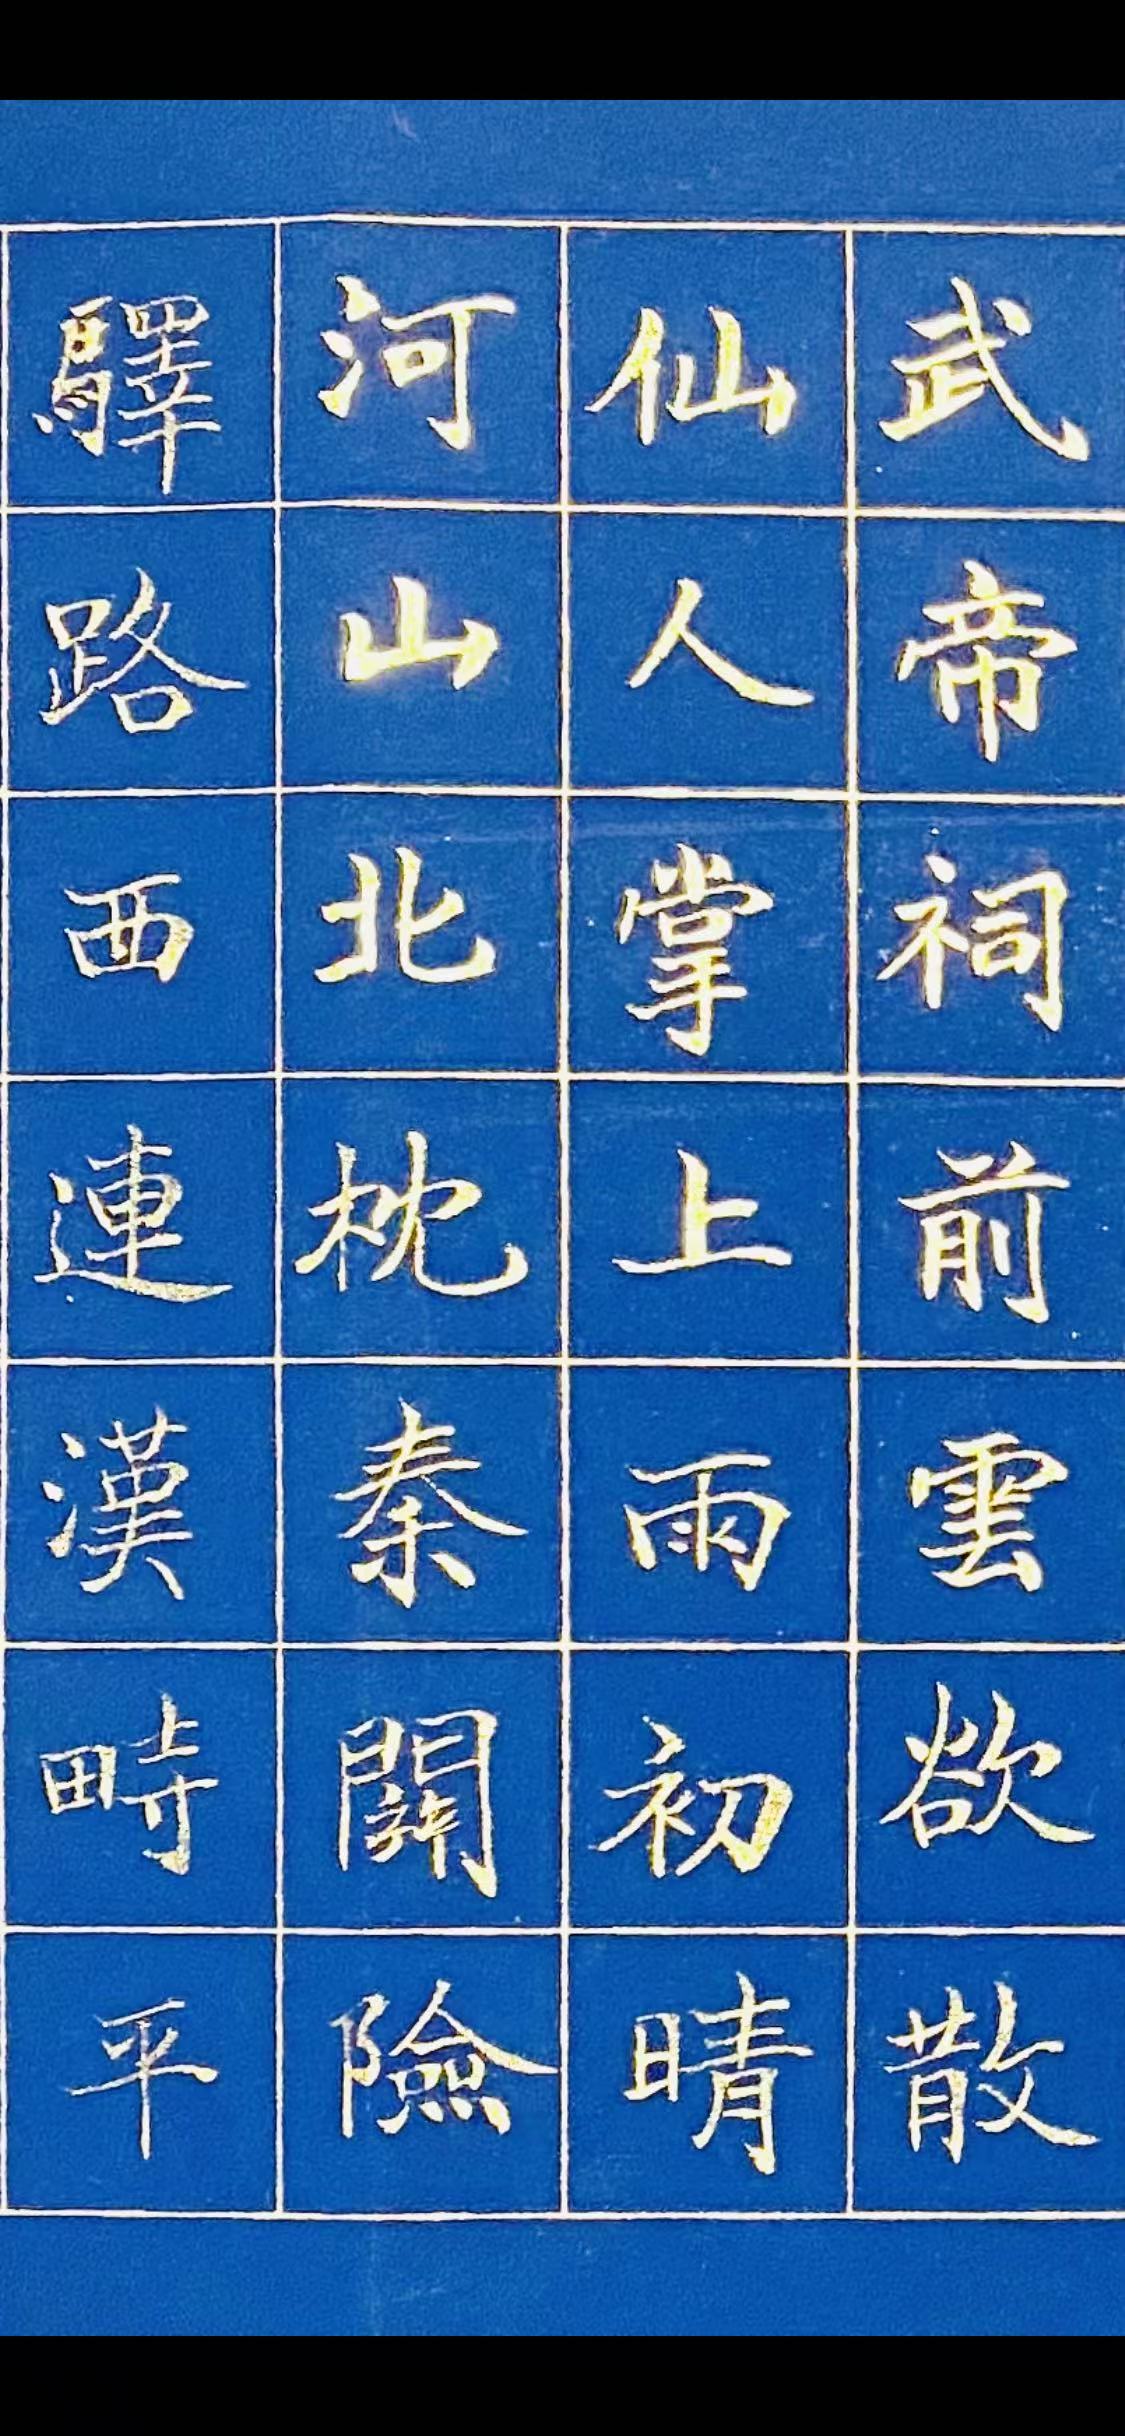 武帝祠前雲欲散
仙人掌上雨初晴
河山北枕秦關險
驛路西連漢畤平